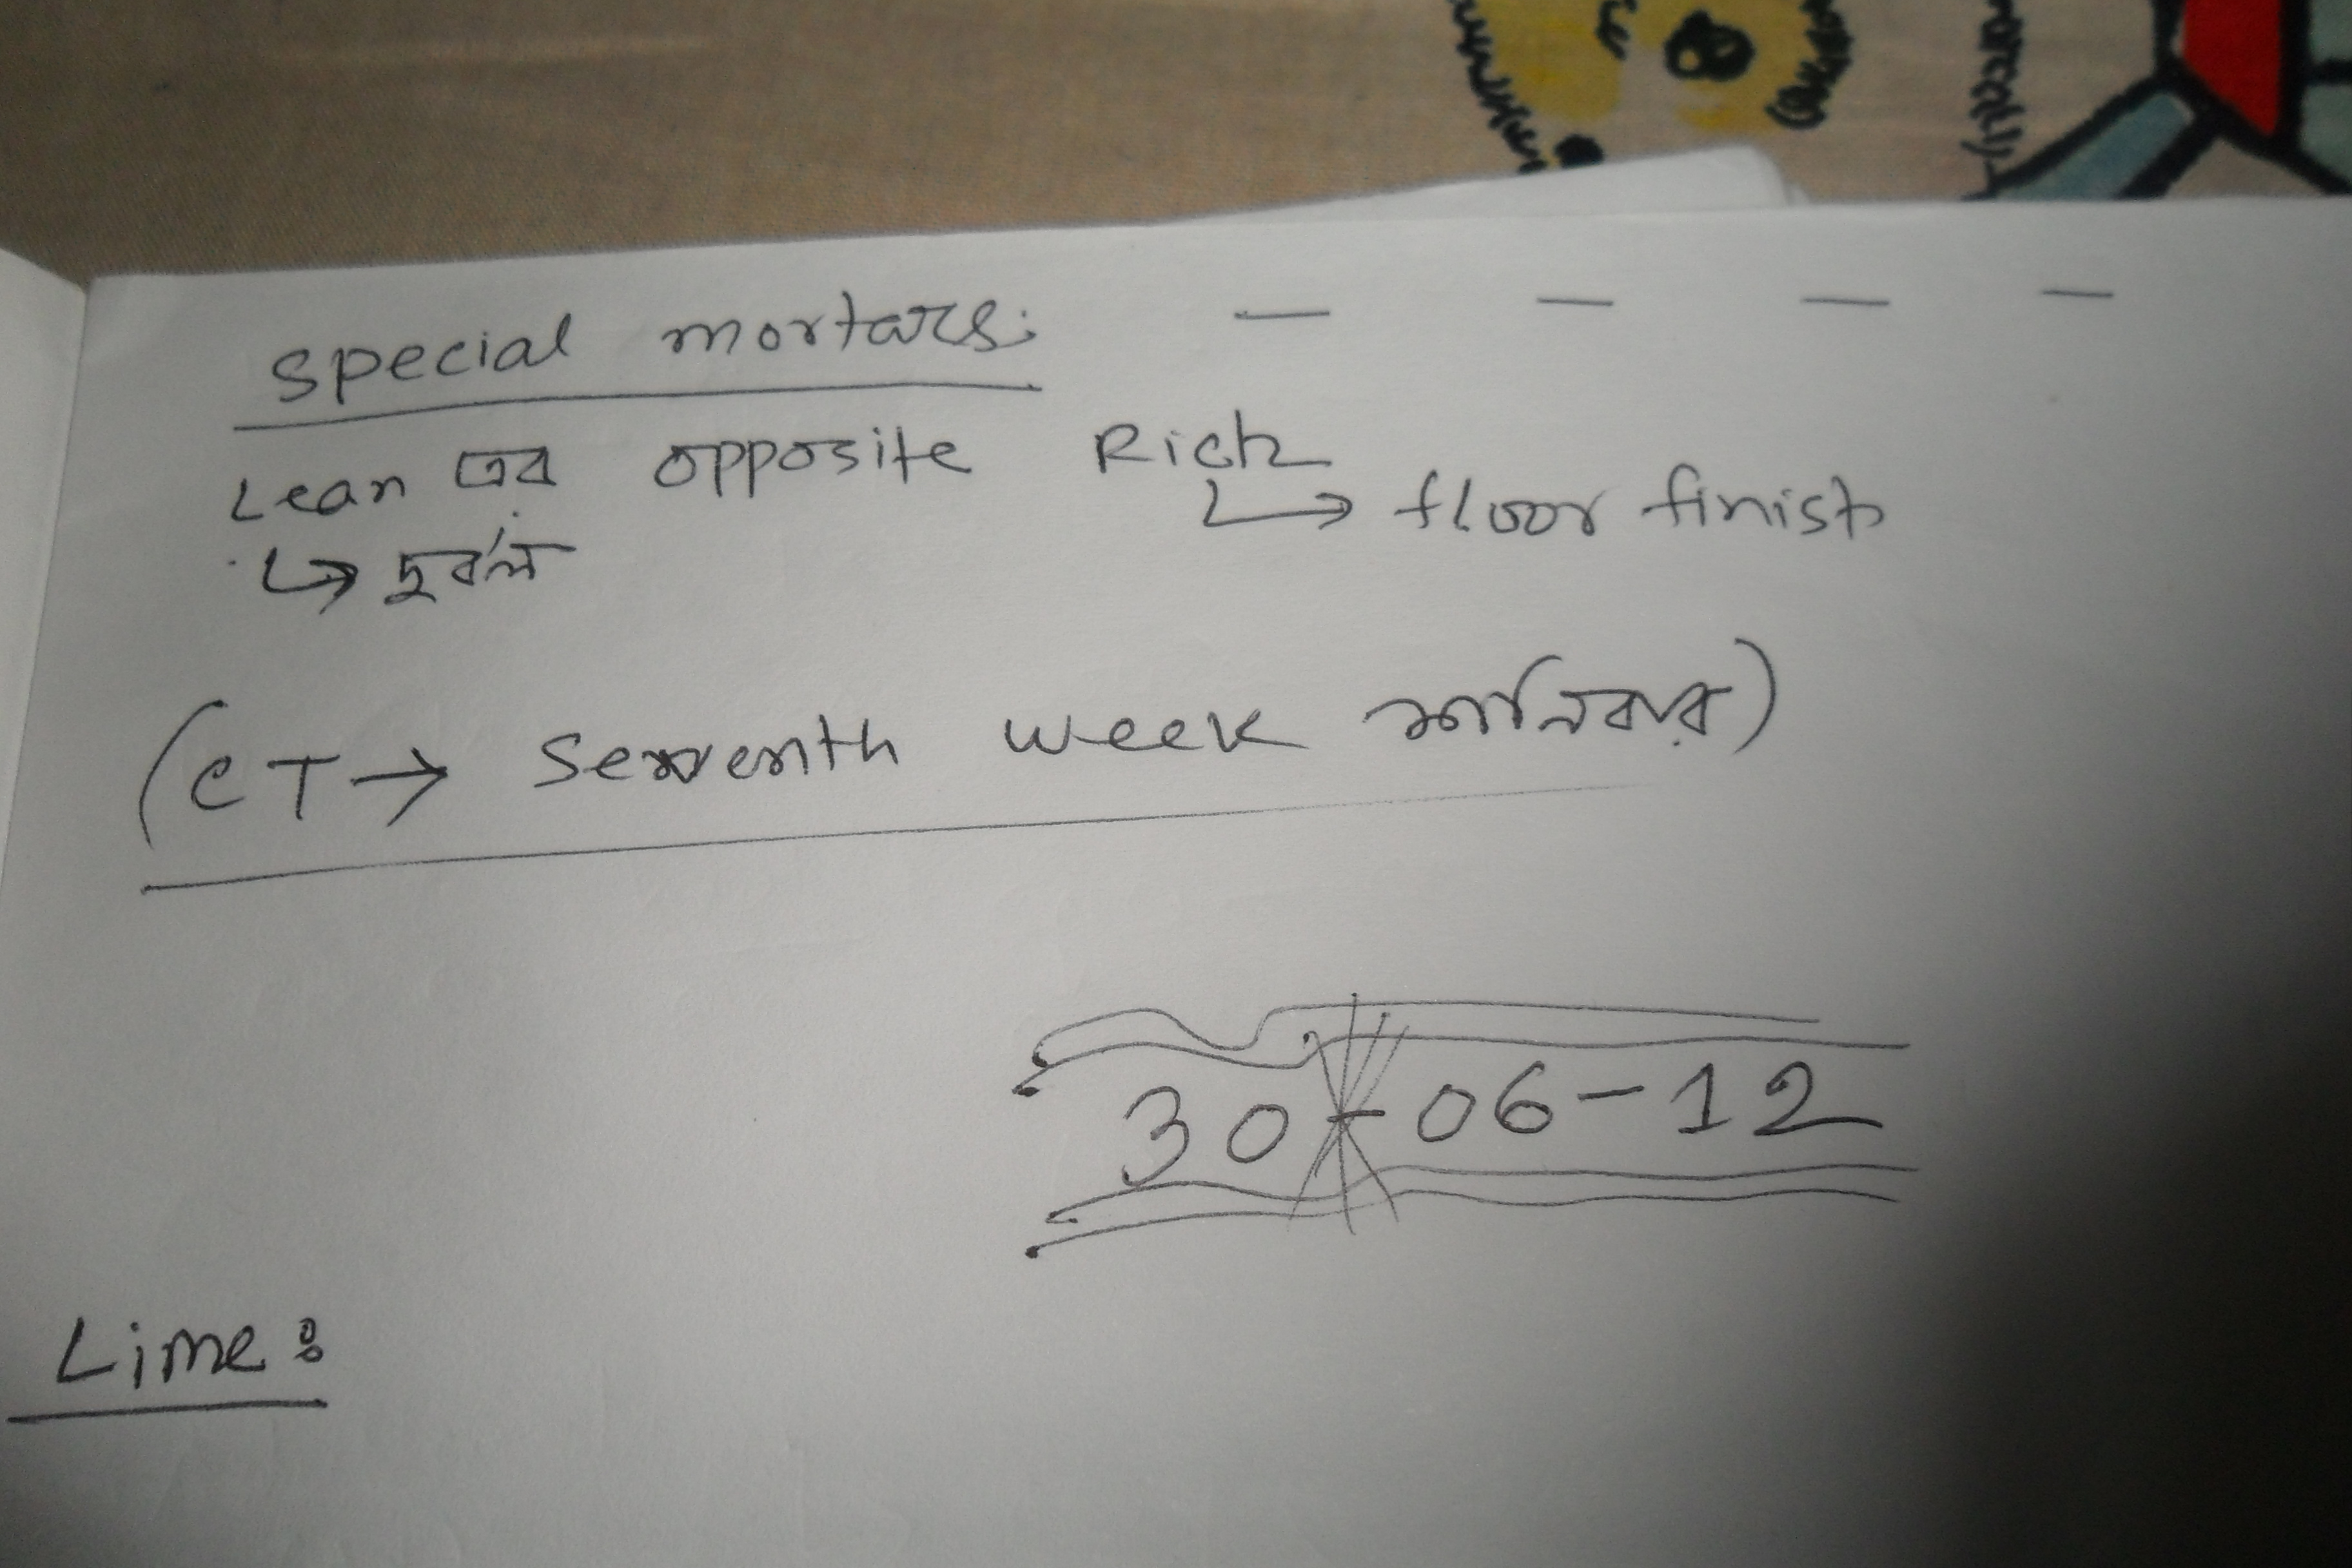 Special mortars: — — — —
Lean এর opposite Rich
↳ floor finish
↳ দুর্বল
(CT → Seventh week শনিবার)
30-06-12
Lime: